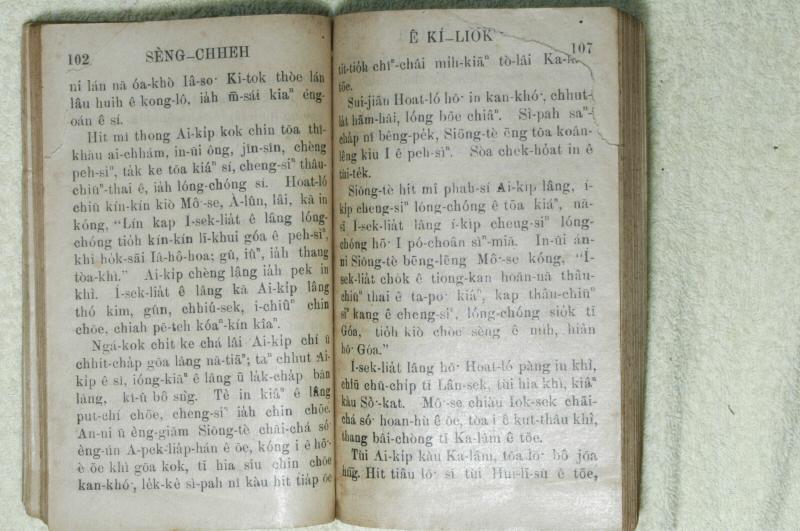 102 SÈNG-CHHEH
ni lán nā óa-khò Iâ-so͘ Ki-tok thòe lán
lâu huih ê kong-lô, iáh m̄-sái kiaⁿ éng-
oán ê sí.
Hit mî thong Ai-kip kok chin tōa thî-
khàu ai-chhám, in-ūi ông, jîn-sîn, chèng
peh-sìⁿ, ta̍k ke tōa kiáⁿ sí, cheng-siⁿ thâu-
chiūⁿ-thai ê, iáh lóng-chóng sí. Hoat-ló
chiū kín-kín kiò Mô͘-se, À-lûn, lâi, kā in
kóng, “Lín kap Í-sek-lia̍t ê lâng lóng-
chóng tio̍h kín-kín lī-khui góa ê peh-sìⁿ,
khì ho̍k-sāi Iâ-hô-hoa; gû, iûⁿ, iáh thang
tòa-khì.” Ai-kip chèng lâng iáh pek in
khì. Í-sek-lia̍t ê lâng kā Ai-kip lâng
thó kim, gûn, chhiú-sek, i-chiûⁿ chin
chōe, chiah pē-teh kóaⁿ-kín kîaⁿ.
Ngá-kok chit ke chá lâi Ai-kip chí ū
chhit-cha̍p gōa lâng nā-tiāⁿ; taⁿ chhut Ai-
kip ê sî, ióng-kiāⁿ ê lâng ū la̍k-cha̍p bān
lâng, kì-û bô sǹg. Tè in kiáⁿ ê lâng
put-chí chōe, cheng-siⁿ iáh chin chōe.
An-ni ū èng-giām Siōng-tè chāi-chá só͘
èng-ún A-pek-lia̍p-hán ê ōe, kóng i ê hō͘-
è ōe khì gōa kok, tī hia siū chin chōe
kan-khó͘, le̍k-kè sì-pah nî kàu hit tia̍p ōe
Ê KÍ-LIO̍K 107
tit-tio̍h chîⁿ-châi mih-kiāⁿ tò-lâi
tōe.
Sui-jiân Hoat-ló hō͘ in kan-khó͘, chhut-
la̍t hām-hāi, lóng bōe chiâⁿ. Sì-pah saⁿ-
cha̍p nî bêng-pe̍k, Siōng-tè ēng tōa koân-
lêng kiù I ê peh-sìⁿ. Sòa chek-hoa̍t in ê
tùi-te̍k.
Siōng-tè hit mî phah-sí Ai-kip lâng, í-
kip cheng-siⁿ lóng-chóng ê tōa kiáⁿ, nā-
sī Í-sek-lia̍t lâng í-kip cheng-siⁿ lóng-
chóng hō͘ I pó-choân sìⁿ-miā. In-ūi án-
ni Siōng-tè bēng-lēng Mô͘-se kóng, “Í-
sek-lia̍t cho̍k ê tiong-kan hoân-nā thâu-
chiūⁿ thai ê ta-po͘ kiáⁿ, kap thâu-chiūⁿ
siⁿ kang ê cheng-siⁿ, lóng-chóng sio̍k tī
Góa, tio̍h kiò chòe sèng ê mih, hiàn
hō͘ Góa.”
Í-sek-lia̍t lâng hō͘ Hoat-ló pàng in khì,
chiū chū-chi̍p tī Lân-sek, tùi hia khì, kiâⁿ
kàu Sò͘-kat. Mô͘-se chiàu Iok-sek chāi-
chá só͘ hoan-hù ê ōe, tòa i ê kut-thâu khì,
thang bâi-chòng tī Ka-lâm ê tōe.
Tùi Ai-kip kàu Ka-lâm, tōa-lō͘ bô jōa
hn̄g. Hit tiâu lō͘ sī tùi Hui-lī-sū ê tōe,